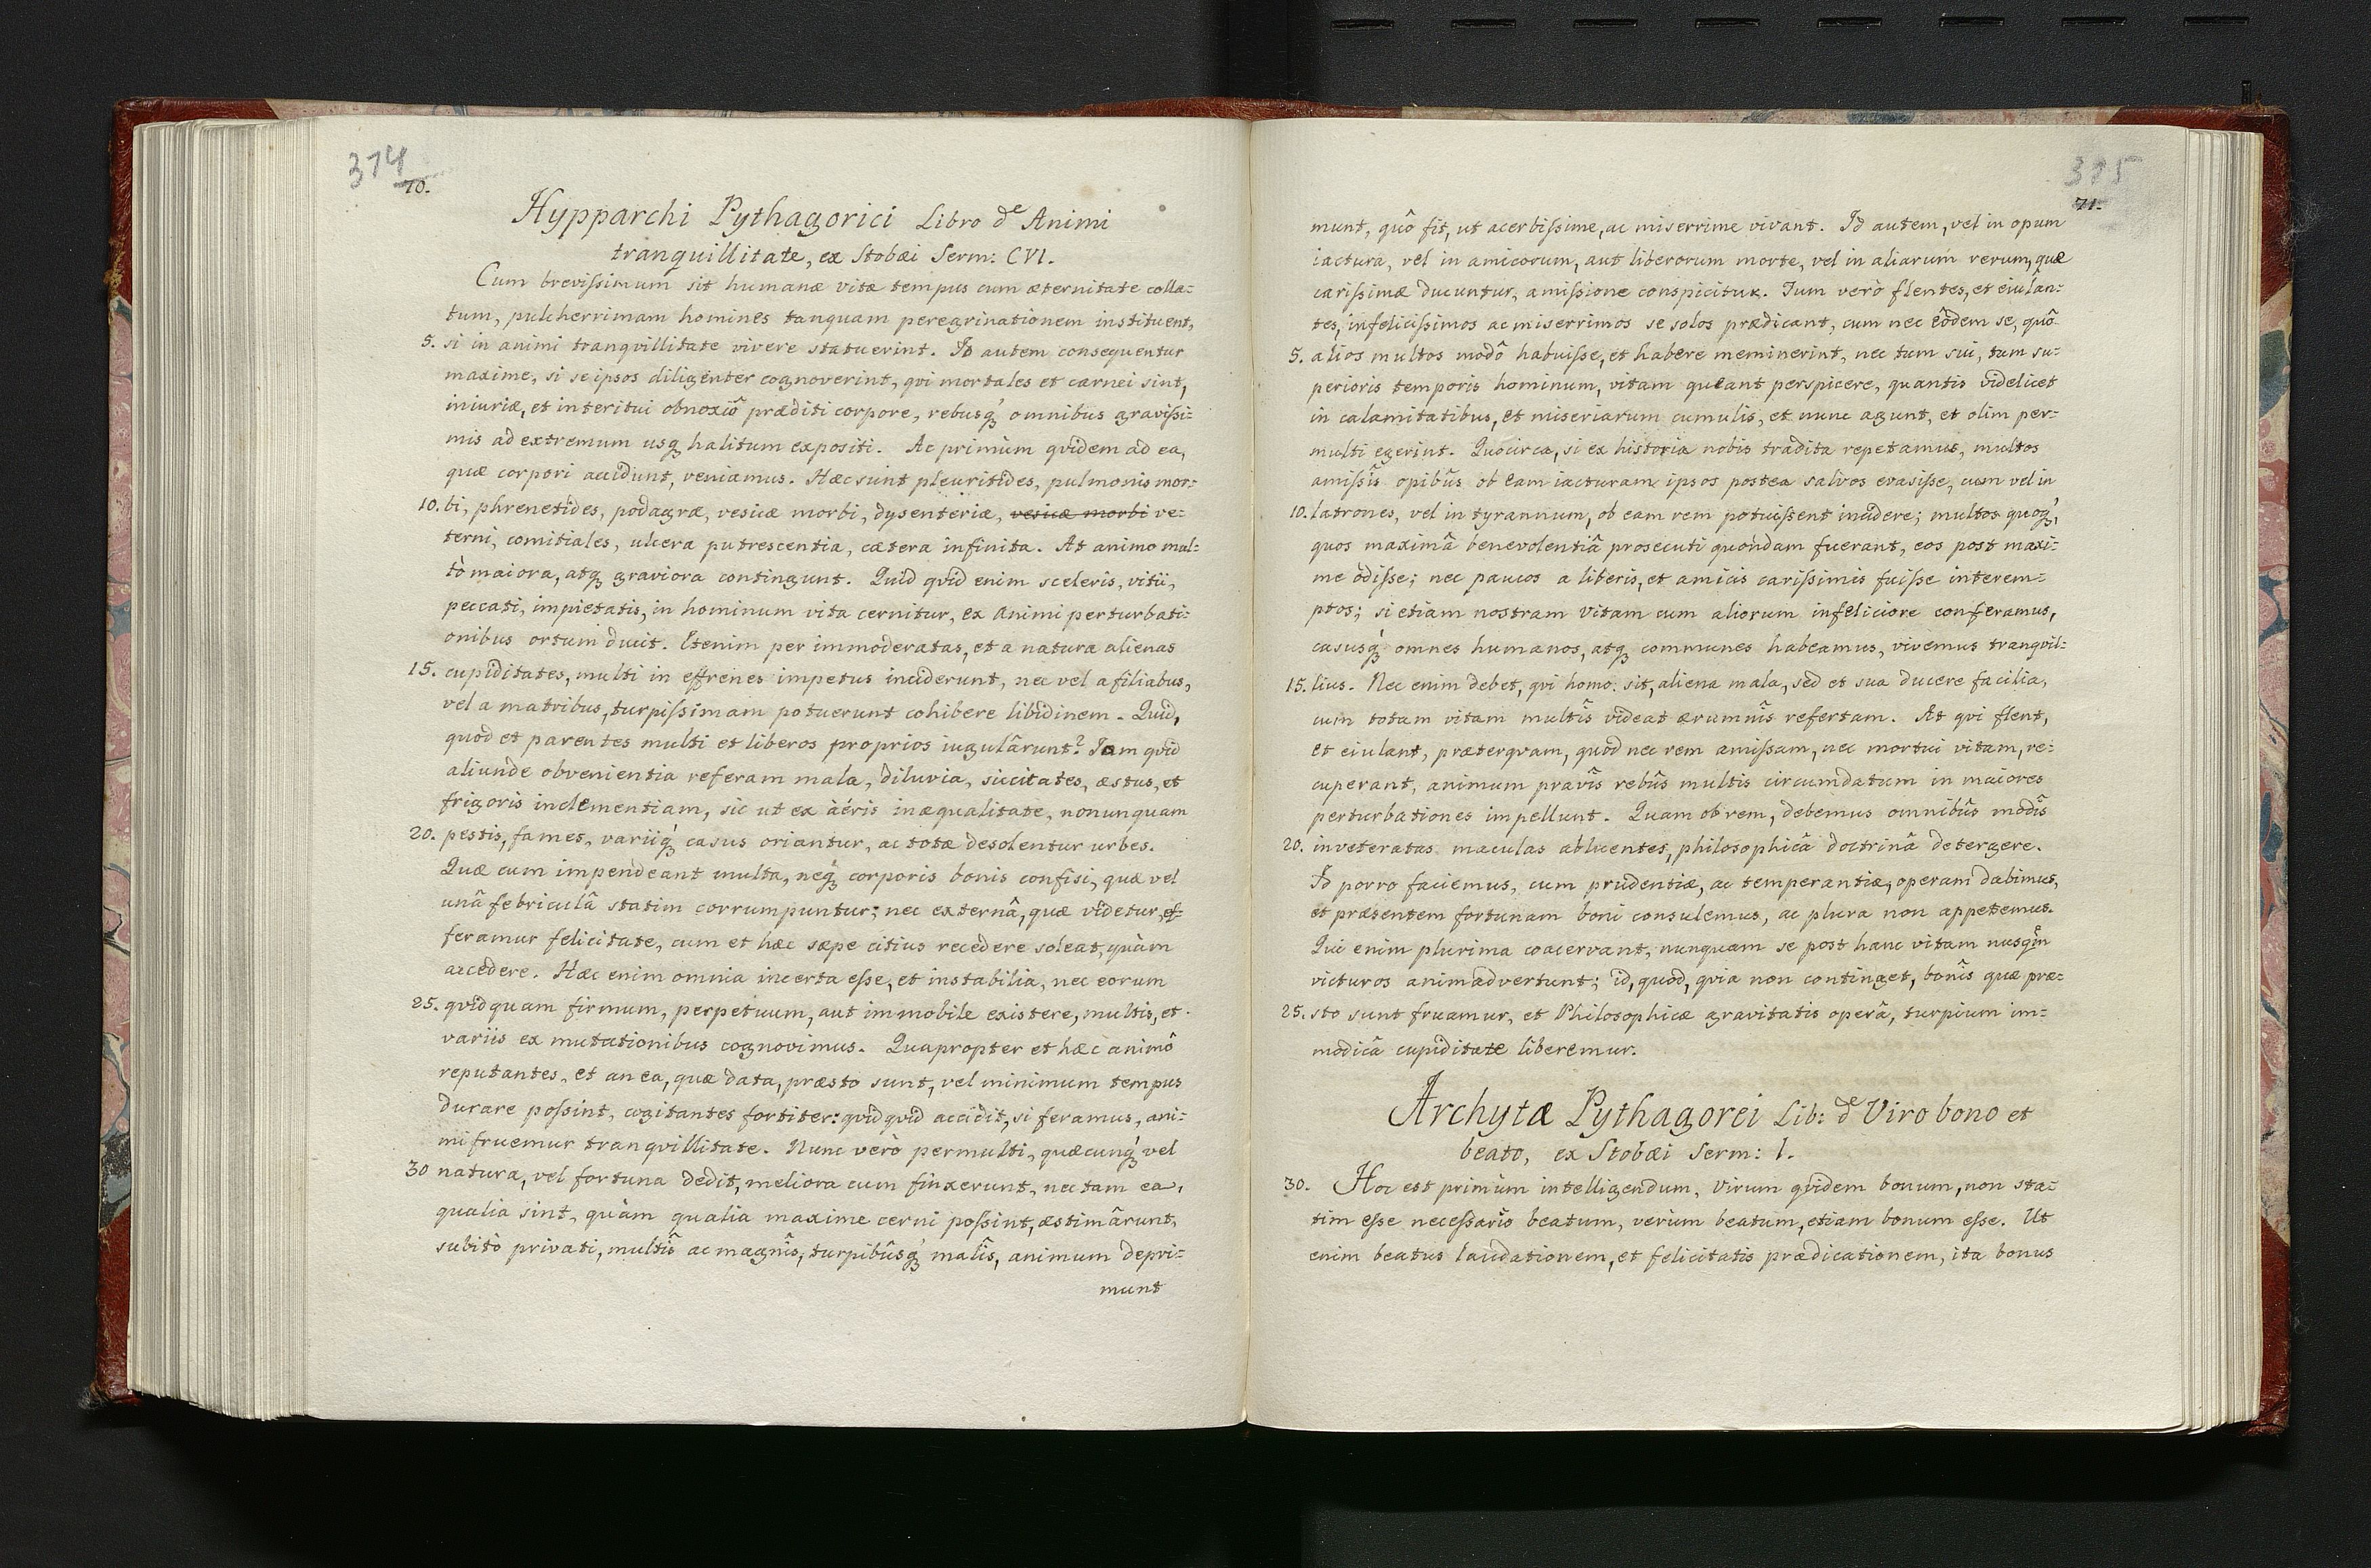 374
70.
Hypparchi Pythagorici Libro de Animi
tranquillitate, ex Stobæi Serm: CVI.
Cum brevissimum sit humanæ vitæ tempus cum æternitate colla=
tum, pulcherrimam homines tanquam peregrinationem instituent,
5. si in animi tranqvillitate vivere statuerint. Id autem consequentur
maxime, si se ipsos diligenter cognoverint, qvi mortales et carnei sint,
iniuriæ, et interitui obnoxiô præditi corpore, rebusq́ omnibus gravissi=
mis ad extremum usq halitum expositi. Ac primùm qvidem ad ea,
quæ corpori accidunt, veniamus. Hæc sunt pleuritides, pulmonis mor=
10. bi, phrenetides, podagræ, vesicæ morbi, dysenteriæ, vesicæ morbi ve=
terni, comitiales, ulcera putrescentia, cætera infinita. At animo mul=
tò maiora, atq graviora contingunt. Quid qvid enim sceleris, vitii,
peccati, impietatis, in hominum vita cernitur, ex Animi perturbati=
onibus ortum ducit. Etenim per immoderatas, et a natura alienas
15. cupiditates, multi in effrenes impetus inciderunt, nec vel a filiabus,
vel a matribus, turpissimam potuerunt cohibere libidinem. Quid,
quod et parentes multi et liberos proprios iugulârunt? Iam qvid
aliunde obvenientia referam mala, diluvia, siccitates, æstus, et
frigoris inclementiam, sic ut ex àéris inæqualitate, nonunquam
20. pestis, fames, variiq́ casus oriantur, ac totæ desolentur urbes.
Quæ cum impendeant multa, neq́ corporis bonis confisi, quæ vel
unâ febriculâ statim corrumpuntur; nec externâ, quæ videtur, ef=
feramur felicitate, cum et hæc sæpe citius recedere soleat, quàm
accedere. Hæc enim omnia incerta esse, et instabilia, nec eorum
25. qvidquam firmum, perpetuum, aut immobile existere, multis, et
variis ex mutationibus cognovimus. Quapropter et hæc animô
reputantes, et an ea, quæ data, præsto sunt, vel minimum tempus
durare possint, cogitantes fortiter: qvidqvid accidit, si feramus, ani=
mi fruemur tranqvillitate. Nunc verò permulti, quæcunq́ vel
30 natura, vel fortuna dedit, meliora cum finxerunt, nec tam ea,
qualia sint, quàm qualia maxime cerni possint, æstimârunt,
subitò privati, multîs ac magnîs, turpibûsq́ malîs, animum depri=
munt
375
71.
munt, quô fit, ut acerbissime, ac miserrime vivant. Id autem, vel in opum
iactura, vel in amicorum, aut liberorum morte, vel in aliarum rerum, quæ
carissimæ ducuntur, amissione conspicitur. Tum verò flentes, et eiulan=
tes, infelicissimos ac miserrimos se solos prædicant, cum nec eôdem se, quô
5. alios multos modô habuisse, et habere meminerint, nec tum sui, tum su=
perioris temporis hominum, vitam queant perspicere, quantis videlicet
in calamitatibus, et miseriarum cumulis, et nunc agunt, et olim per=
multi egerint. Quocirca, si ex historia nobis tradita repetamus, multos
amissîs opibûs ob eam iacturam ipsos postea salvos evasisse, cum vel in
10. latrones, vel in tyrannum, ob eam rem potuissent incidere; multos quoq́,
quos maximâ benevolentiâ prosecuti quondam fuerant, eos post maxi=
me odisse; nec paucos a liberis, et amicis carissimis fuisse interem=
ptos; si etiam nostram vitam cum aliorum infeliciore conferamus,
casusq́ omnes humanos, atq communes habeamus, vivemus tranqvil=
15. lius. Nec enim debet, qvi homo sit, aliena mala, sed et sua ducere facilia,
cum totam vitam multîs videat ærumnîs refertam. At qvi flent,
et eiulant, præterqvam, quod nec rem amissam, nec mortui vitam, re=
cuperant, animum pravîs rebûs multis circumdatum in maiores
perturbationes impellunt. Quam ob rem, debemus omnibûs modîs
20. inveteratas maculas abluentes, philosophicâ doctrinâ detergere.
Id porro faciemus, cum prudentiæ, ac temperantiæ, operam dabimus,
et præsentem fortunam boni consulemus, ac plura non appetemus.
Qui enim plurima coacervant, nunquam se post hanc vitam
victuros animadvertunt; id, quod, qvia non continget, bonîs quæ præ=
25. sto sunt fruamur, et Philosophicæ gravitatis operâ, turpium im=
modicâ cupiditate liberemur.
Archytæ Pythagorei Lib: de Viro bono et
beato, ex Stobæi Serm: 1.
30. Hoc est primùm intelligendum, Virum qvidem bonum, non sta=
tim esse necessariò beatum, verùm beatum, etiam bonum esse. Ut
enim beatus laudationem, et felicitatis prædicationem, ita bonus